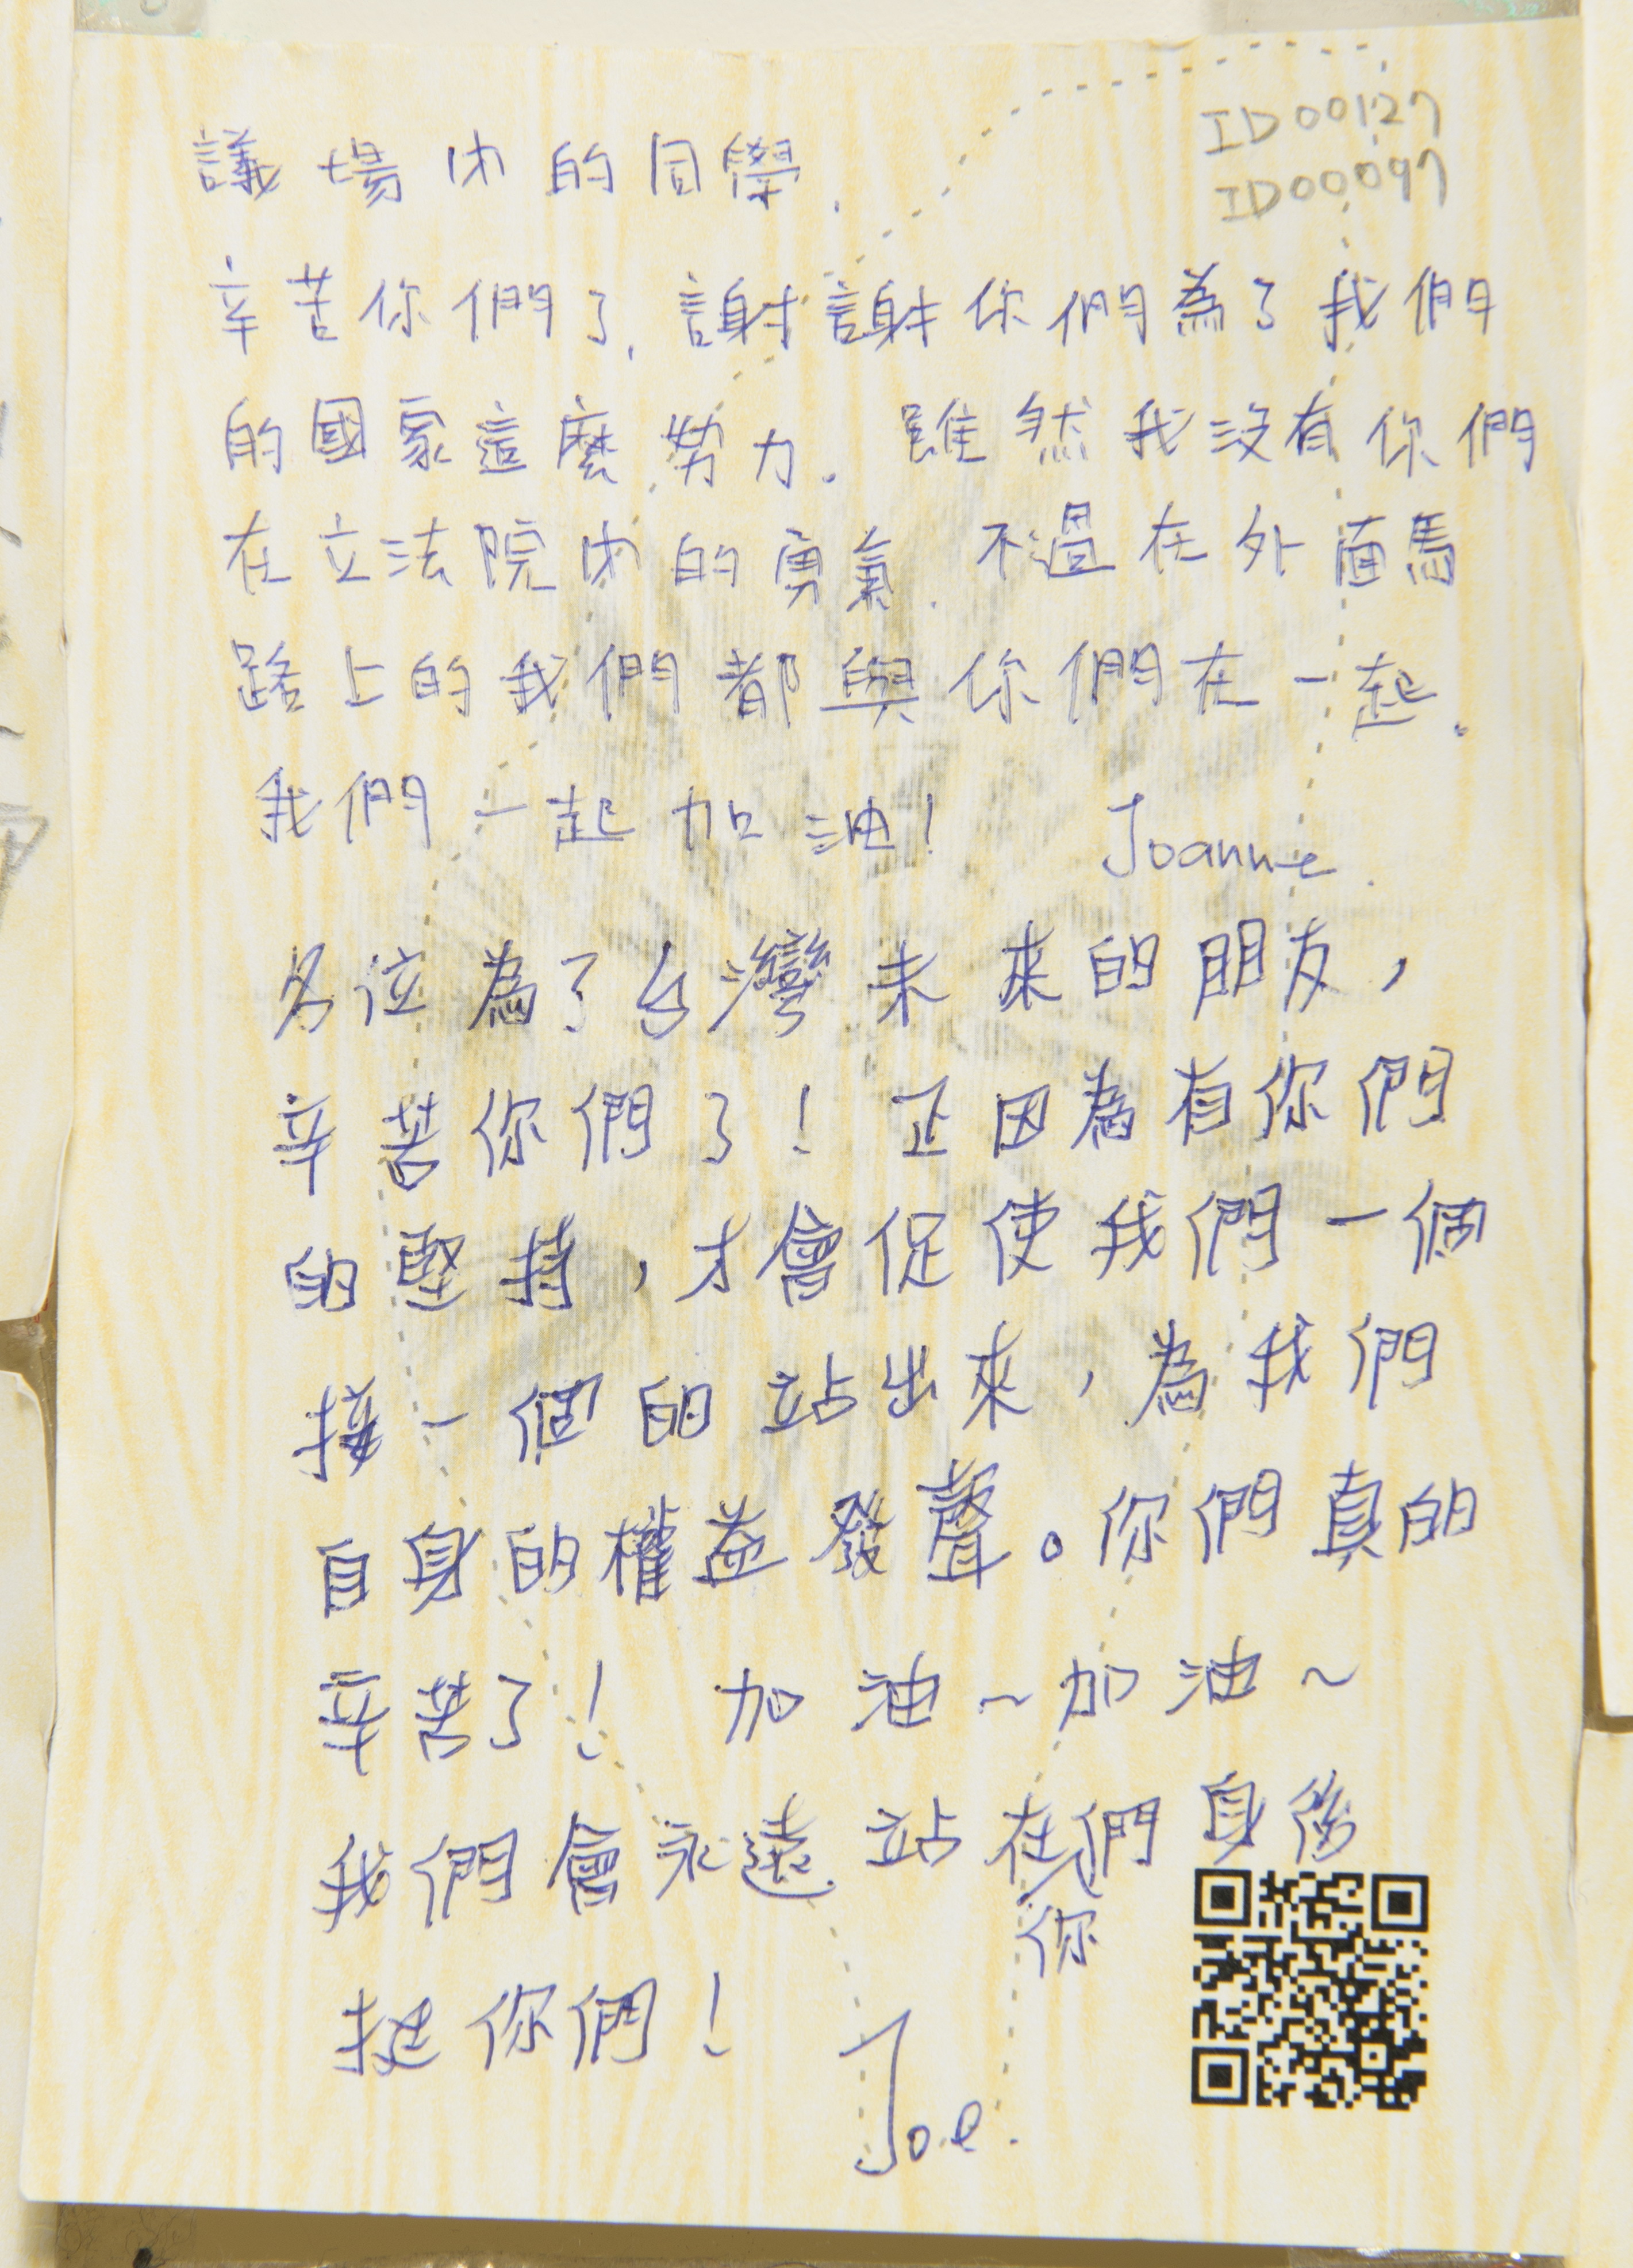 ID00127
ID00097
議場內的同學.
辛苦你們了.謝謝你們為了我們
的國家這麼努力.雖然我沒有你們
在立法院內的勇氣.不過在外面馬
路上的我們都與你們在一起.
我們一起加油! Joanne.
各位為了台灣未來的朋友,
辛苦你們了!正因為有你們
的堅持,才會促使我們一個
接一個的站出來,為我們
自身的權益發聲。你們真的
辛苦了! 加油~加油~
我們會永遠站在你們身後
挺你們! Joe.